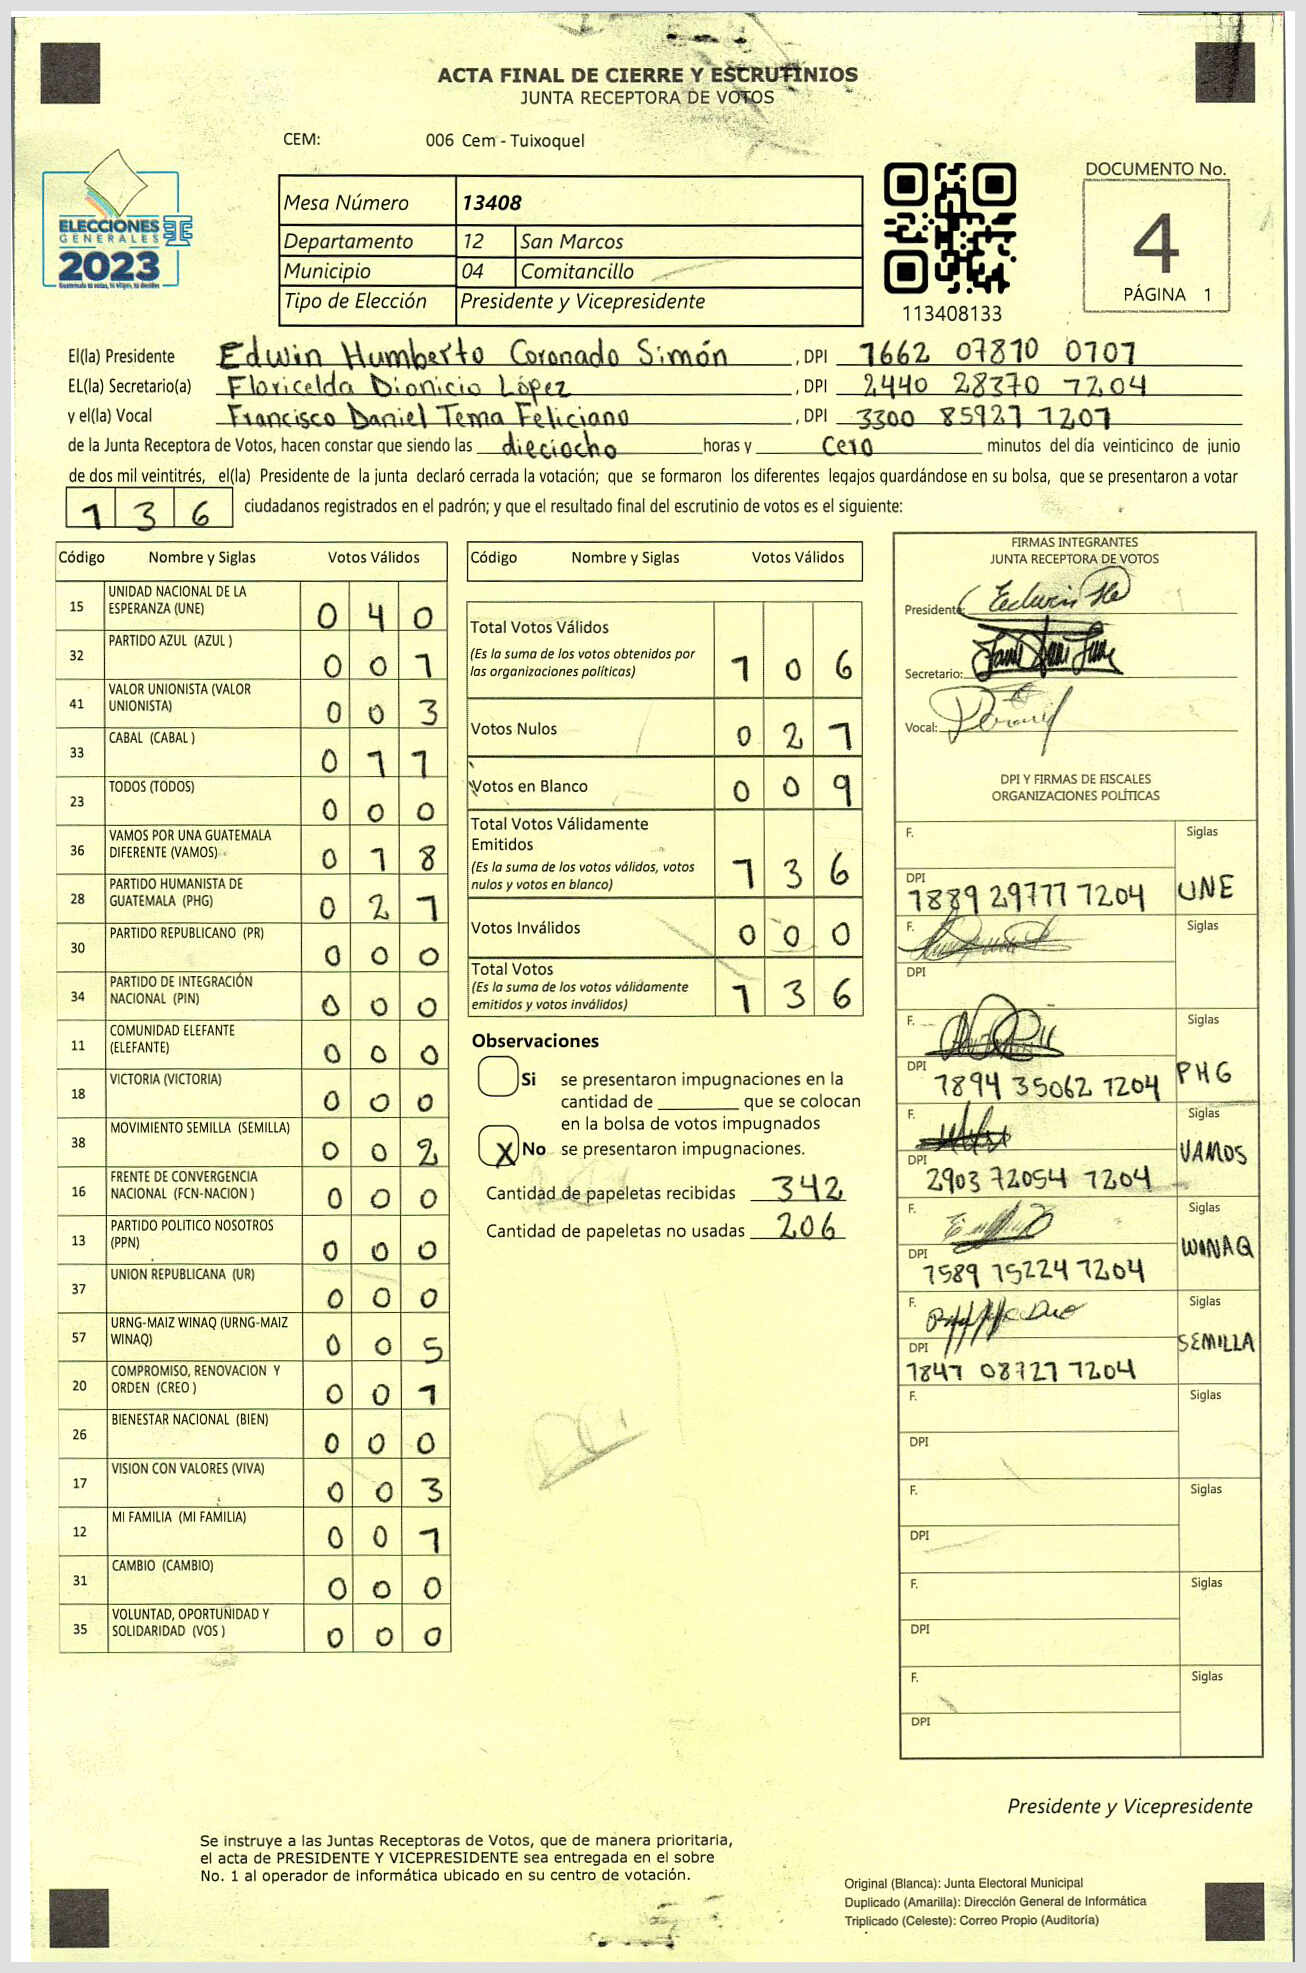 ACTA FINAL DE CIERRE Y ESCRUTINIOS
JUNTA RECEPTORA DE VOTOS
CEM: 006 Cem - Tuixoquel
ELECCIONES
GENERALES
2023
Mesa Número 13408
Departamento 12 San Marcos
Municipio 04 Comitancillo
Tipo de Elección Presidente y Vicepresidente
113408133
DOCUMENTO No.
4
PÁGINA 1
El(la) Presidente Edwin Humberto Coronado Simón , DPI 1662 07810 0101
EL(la) Secretario(a) Floricelda Dionicio López , DPI 2440 28370 1204
y el(la) Vocal Francisco Daniel Tema Feliciano , DPI 3300 85921 1201
de la Junta Receptora de Votos, hacen constar que siendo las dieciocho horas y cero minutos del día veinticinco de junio
de dos mil veintitrés, el(la) Presidente de la junta declaró cerrada la votación; que se formaron los diferentes legajos guardándose en su bolsa, que se presentaron a votar
136 ciudadanos registrados en el padrón; y que el resultado final del escrutinio de votos es el siguiente:
Código Nombre y Siglas Votos Válidos
15 UNIDAD NACIONAL DE LA ESPERANZA (UNE) 0 4 0
32 PARTIDO AZUL (AZUL ) 0 0 1
41 VALOR UNIONISTA (VALOR UNIONISTA) 0 0 3
33 CABAL (CABAL ) 0 1 1
23 TODOS (TODOS) 0 0 0
36 VAMOS POR UNA GUATEMALA DIFERENTE (VAMOS) 0 1 8
28 PARTIDO HUMANISTA DE GUATEMALA (PHG) 0 2 1
30 PARTIDO REPUBLICANO (PR) 0 0 0
34 PARTIDO DE INTEGRACIÓN NACIONAL (PIN) 0 0 0
11 COMUNIDAD ELEFANTE (ELEFANTE) 0 0 0
18 VICTORIA (VICTORIA) 0 0 0
38 MOVIMIENTO SEMILLA (SEMILLA) 0 0 2
16 FRENTE DE CONVERGENCIA NACIONAL (FCN-NACION ) 0 0 0
13 PARTIDO POLITICO NOSOTROS (PPN) 0 0 0
37 UNION REPUBLICANA (UR) 0 0 0
57 URNG-MAIZ WINAQ (URNG-MAIZ WINAQ) 0 0 5
20 COMPROMISO, RENOVACION Y ORDEN (CREO ) 0 0 1
26 BIENESTAR NACIONAL (BIEN) 0 0 0
17 VISION CON VALORES (VIVA) 0 0 3
12 MI FAMILIA (MI FAMILIA) 0 0 1
31 CAMBIO (CAMBIO) 0 0 0
35 VOLUNTAD, OPORTUNIDAD Y SOLIDARIDAD (VOS ) 0 0 0
Código Nombre y Siglas Votos Válidos
Total Votos Válidos 1 0 6
(Es la suma de los votos obtenidos por
las organizaciones políticas)
Votos Nulos 0 2 1
Votos en Blanco 0 0 9
Total Votos Válidamente
Emitidos 1 3 6
(Es la suma de los votos válidos, votos
nulos y votos en blanco)
Votos Inválidos 0 0 0
Total Votos 1 3 6
(Es la suma de los votos válidamente
emitidos y votos inválidos)
Observaciones
Si se presentaron impugnaciones en la
cantidad de ________ que se colocan
en la bolsa de votos impugnados
X No se presentaron impugnaciones.
Cantidad de papeletas recibidas 342
Cantidad de papeletas no usadas 206
FIRMAS INTEGRANTES
JUNTA RECEPTORA DE VOTOS
Presidente:
Secretario:
Vocal:
DPI Y FIRMAS DE FISCALES
ORGANIZACIONES POLÍTICAS
F. Siglas
DPI 1889 29777 1204 UNE
F. Siglas
DPI
F. Siglas
DPI 1894 35062 1204 PHG
F. Siglas
DPI 2903 72054 1204 VAMOS
F. Siglas
DPI 1589 15224 1204 WINAQ
F. Siglas
DPI 1847 08721 1204 SEMILLA
F. Siglas
DPI
F. Siglas
DPI
F. Siglas
DPI
F. Siglas
DPI
Presidente y Vicepresidente
Se instruye a las Juntas Receptoras de Votos, que de manera prioritaria,
el acta de PRESIDENTE Y VICEPRESIDENTE sea entregada en el sobre
No. 1 al operador de informática ubicado en su centro de votación.
Original (Blanca): Junta Electoral Municipal
Duplicado (Amarilla): Dirección General de Informática
Triplicado (Celeste): Correo Propio (Auditoría)